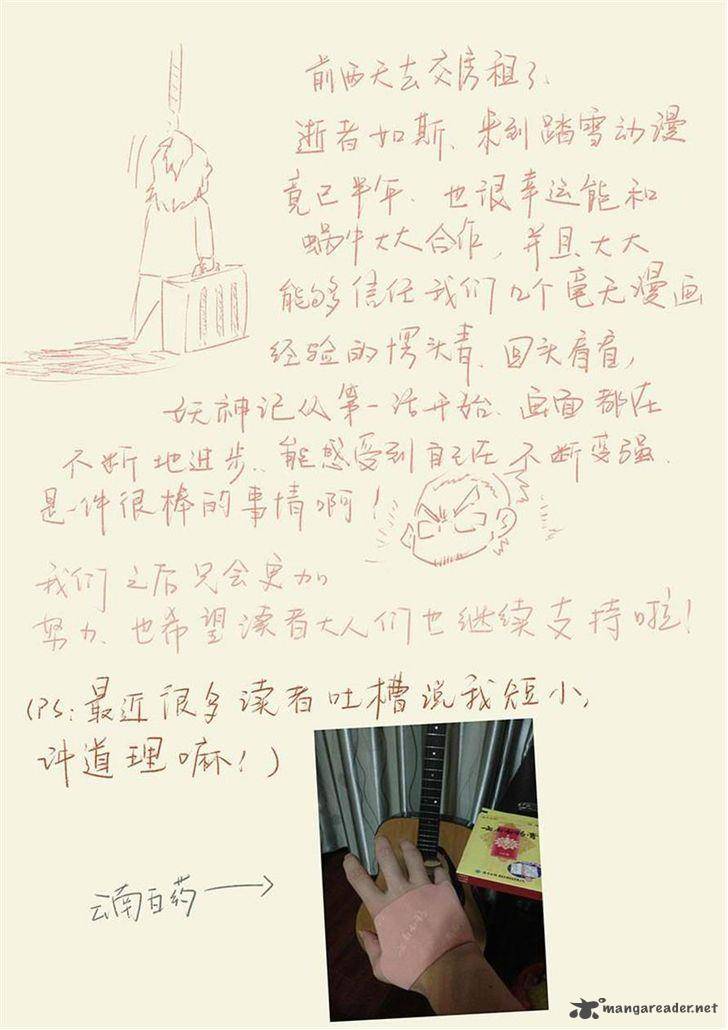 前两天去交房租了、
逝者如斯、来到踏雪动漫
竟已半年、也很幸运能和
蜗牛大大合作，并且大大
能够信任我们几个毫无漫画
经验的愣头青、回头看看，
妖神记从第一话开始、画面都在
不断地进步、能感受到自己在不断变强、
是一件很棒的事情啊！
我们之后只会更加
努力、也希望读者大人们也继续支持啦！
(PS：最近很多读者吐槽说我短小，
讲道理嘛！)
云南白药
mangareader.net